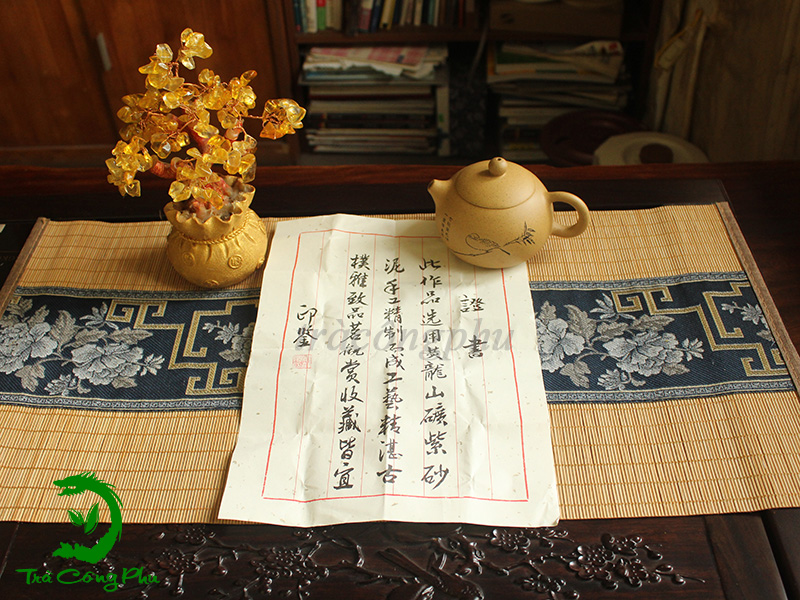 證書
此作品选用黄龍山礦紫砂
泥手工精制而成工藝精湛古
樸雅致品茗觀赏收藏皆宜
印鑒
tracongphu
Trà Công Phu